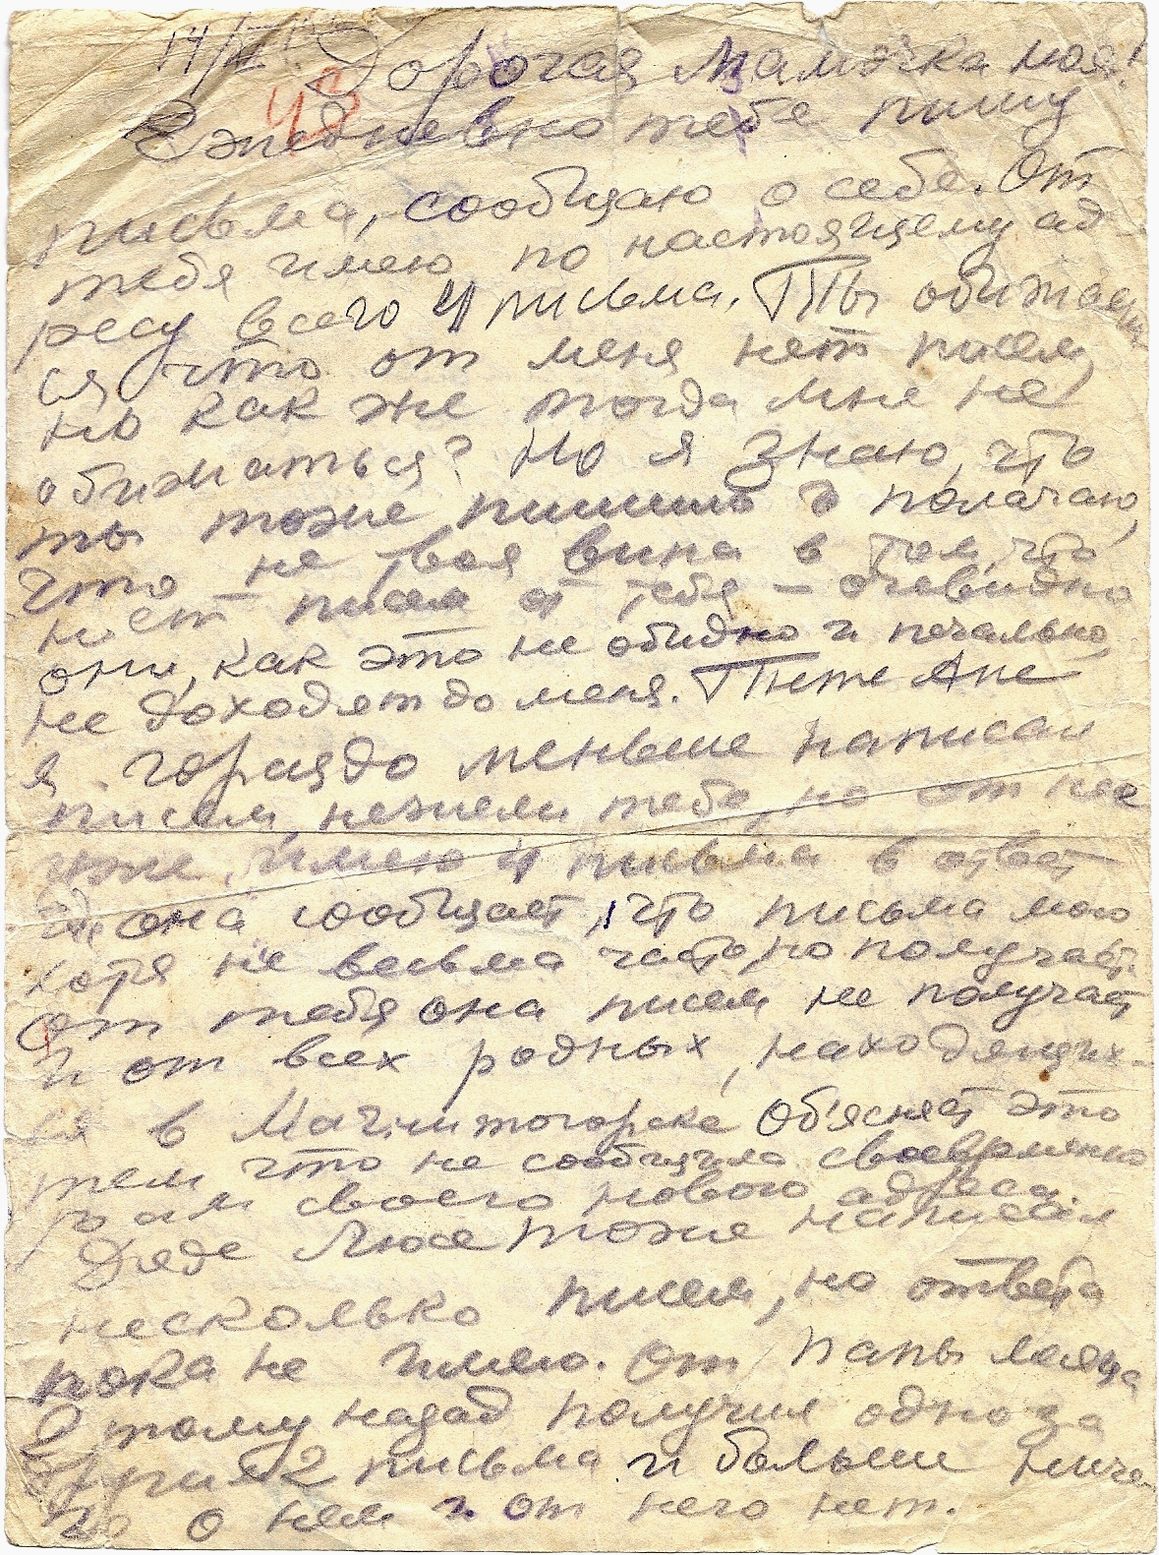 14/II Дорогая Мамочка моя!
43
Ежедневно тебе пишу
письма, сообщаю о себе. От
тебя имею по настоящему ад-
ресу всего 4 письма. Ты обижаеш
ся что от меня нет писем,
но как же тогда мне не
обижаться? Но я знаю, что
ты тоже пишешь и полагаю,
что не твоя вина в том, что
нет писем от тебя – очевидно
они, как это не обидно и печально,
не доходят до меня. Тете Ане
я гораздо меньше написал
писем, нежели тебе, но от нее
уже имею 4 письма в ответ
где она сообщает, что письма мои
хотя не весьма часто, но получает.
От тебя она писем не получает
и от всех родных, находящих-
ся в Магнитогорске Об'ясняет это
тем что не сообщила своевременно
вам своего нового адреса.
Дяде Люсе тоже написал
несколько писем, но ответа
пока не имею. От папы месяца
2 тому назад получил одно за
другим 2 письма и больше ниче
го о нем и от него нет.